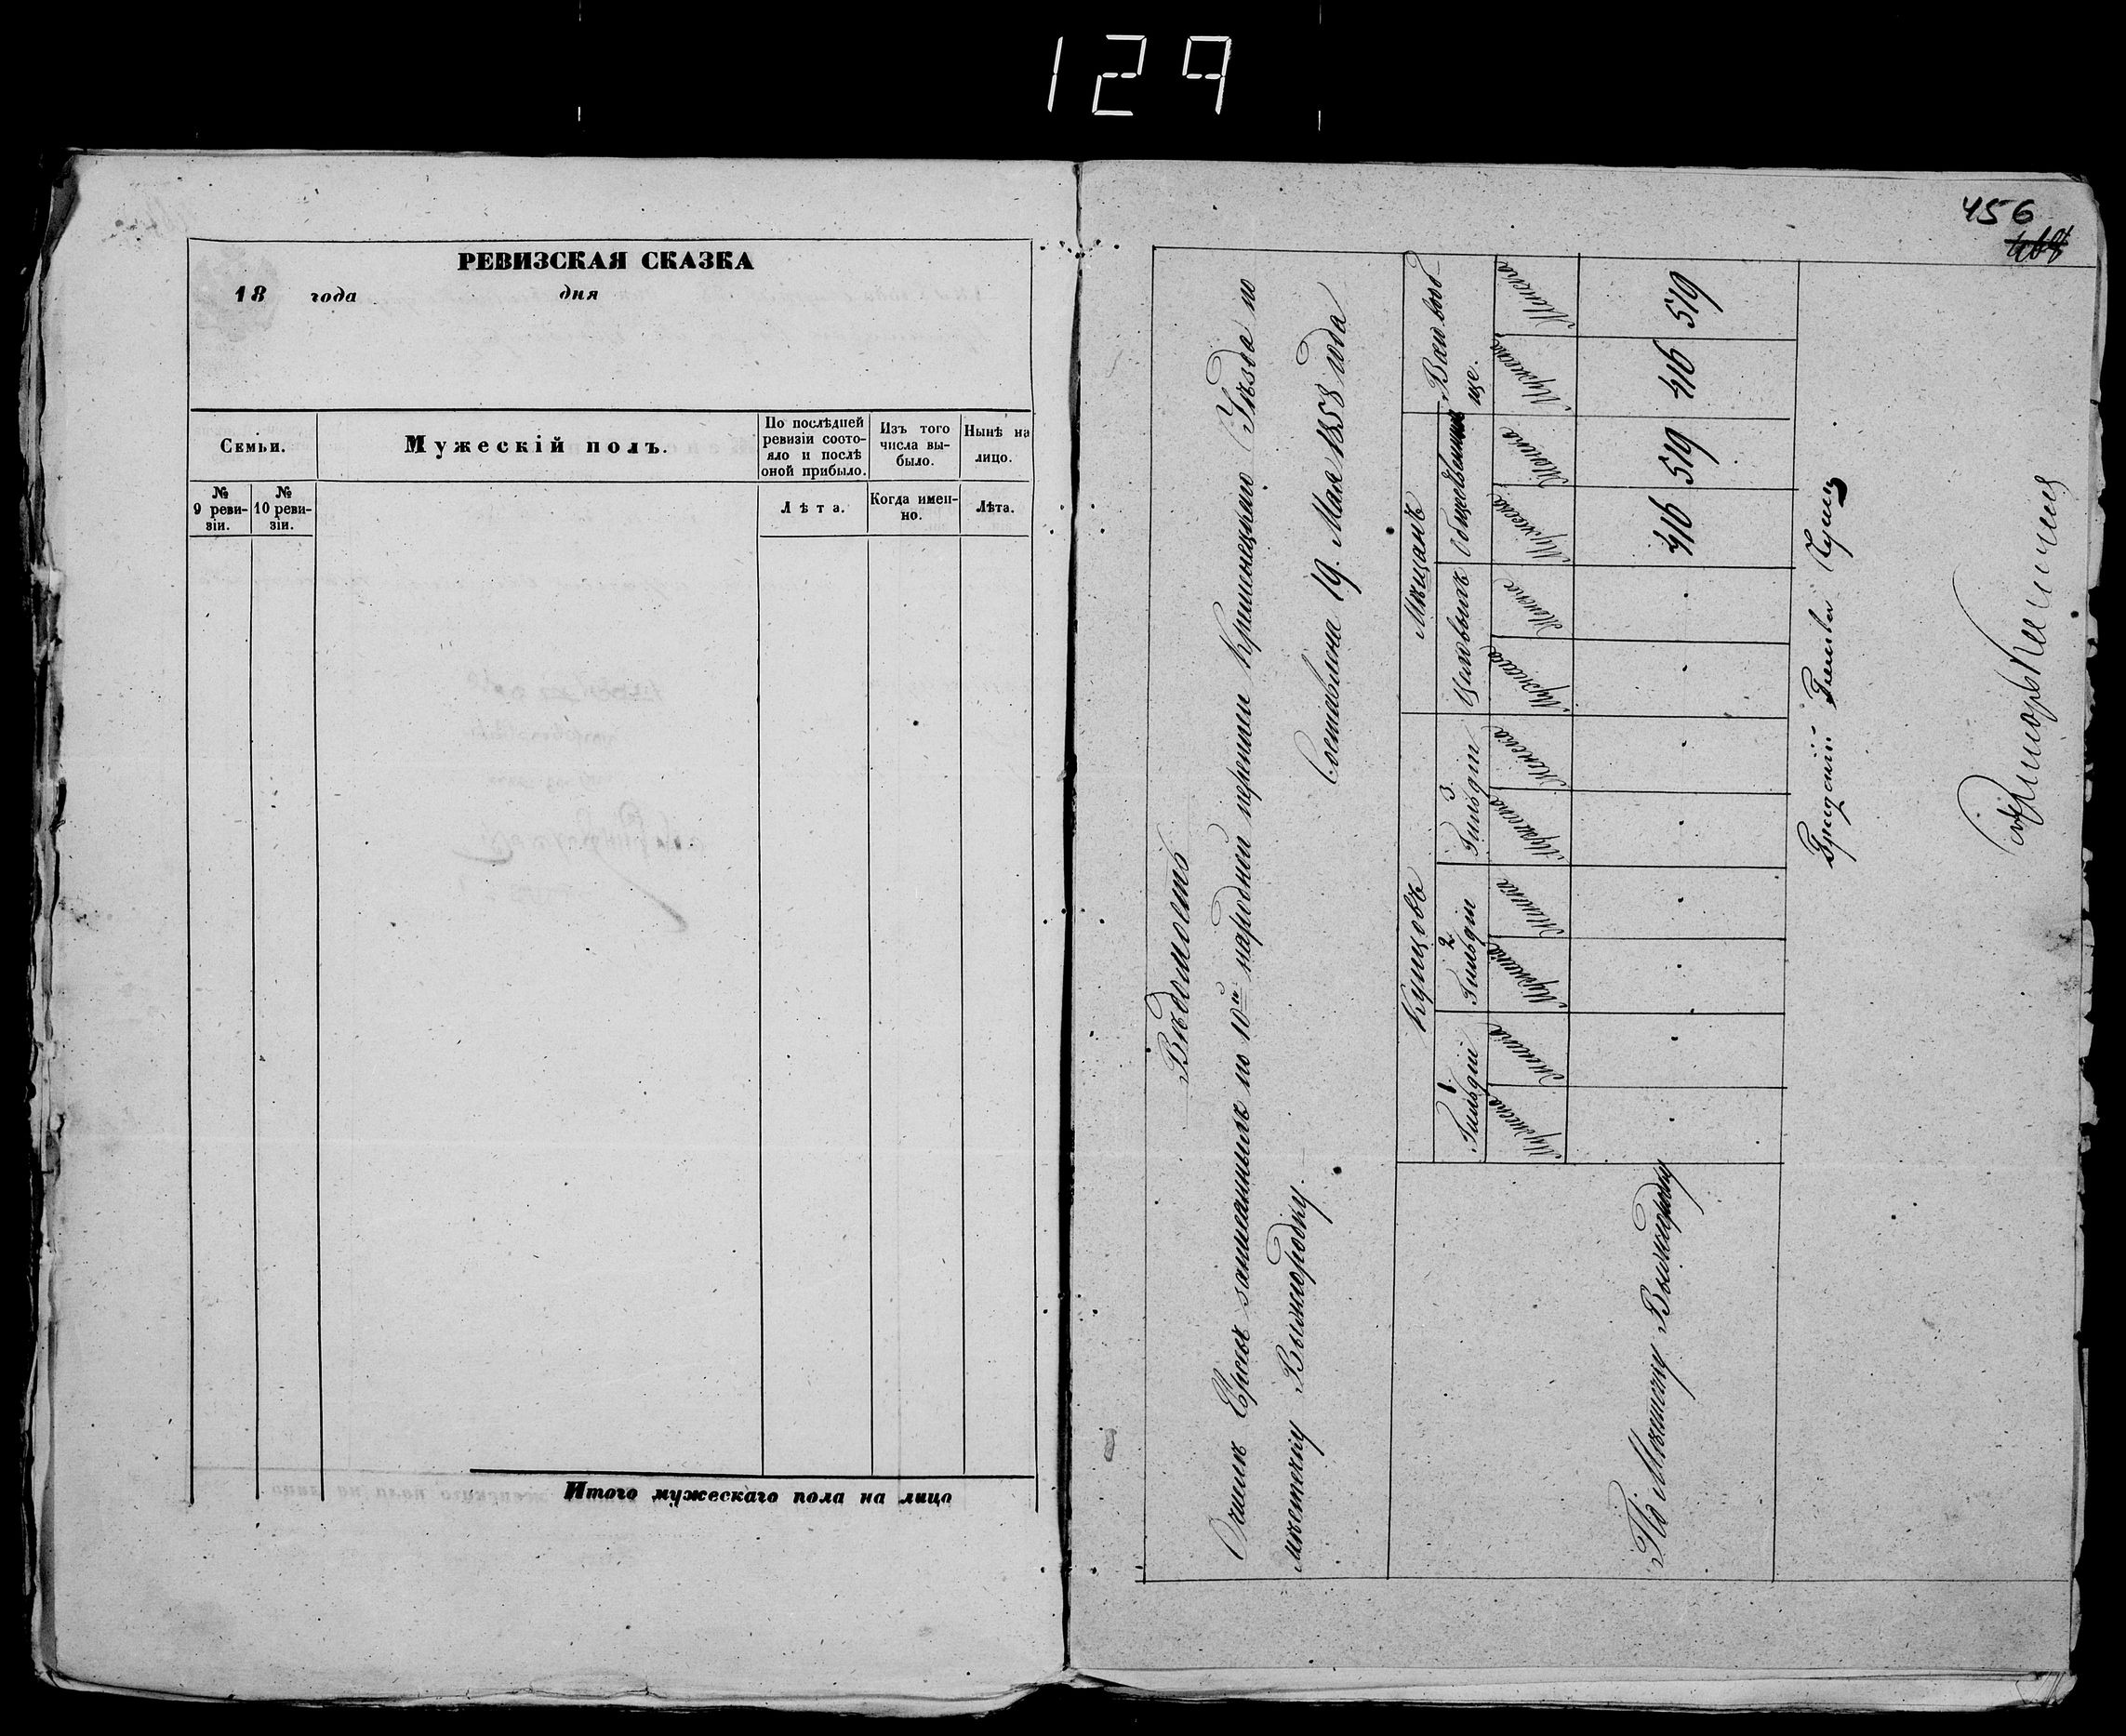 129
РЕВИЗСКАЯ СКАЗКА
18 года дня
Семьи.
Мужескій полъ.
По послѣдней ревизіи состо-
яло и послѣ
оной прибыло.
Изъ того
числа вы-
было.
Нынѣ на
лицо.
№
9 реви-
зіи.
№
10 реви-
зіи.
Лѣта.
Когда имен-
но.
Лѣта.
Итого мужескаго пола на лицо
456
468
Вѣдомость
Евреяхъ записанныхъ по 10й народной переписи Кременецкаго Уѣзда по
мѣстечку Вышгородку.
Составлена 19. Мая 1858 года
Купцовъ
Мѣщанъ
Вообще.
1 Гильдіи
2 Гильдіи
3 Гильдіи
Цеховыхъ
Мужеска
Женска
Мужеска
Женска
Мужеска
Женска
Мужеска
Женска
Мужеска
Женска
Мужеска
Женска
По Мѣстечку Вышгородку
416
519
416
519